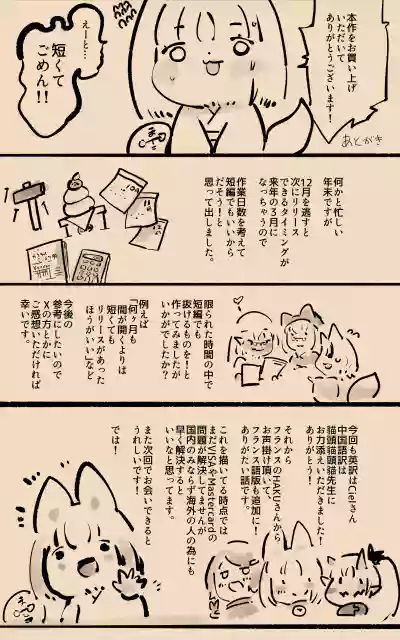 本作をお買い上げ
いただいて
ありがとうございます!
あとがき
えーと…
短くて
ごめん!!
何かと忙しい
年末ですが
12月を逃すと
次にリリース
できるタイミングが
来年の3月に
なっちゃうので
作業日数を考えて
短編でもいいから
だそう!と
思って出しました。
限られた時間の中で
短編でも
抜けるものを!と
作ってみましたが
いかがでしたか?
例えば
「何ヶ月も
間が開くよりは
短くても
リリースがあった
ほうがいい」など
今後の
参考にしたいので
Xの方とかに
ご感想いただければ
幸いです。
今回も英訳はCielさん
中国語訳は
貓頭貓頭貓先生に
お力添えいただきました!
ありがとう!
それから
フランスのHAKUさんから
お声掛け頂いて、
フランス語版も追加に!
ありがたい話です。
これを描いてる時点では
まだVISAやMastercardの
問題が解決してませんが
国内のみならず海外の人の為にも
早く解決すると
いいなと思ってます。
また次回でお会いできると
うれしいです!
では!